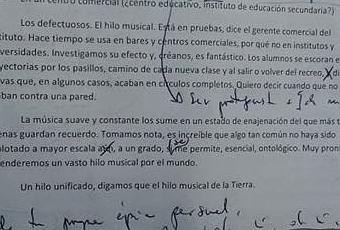 un centro comercial (¿centro educativo, instituto de educación secundaria?)
Los defectuosos. El hilo musical. Está en pruebas, dice el gerente comercial del
tituto. Hace tiempo se usa en bares y centros comerciales, por qué no en institutos y
versidades. Investigamos su efecto y, créanos, es fantástico. Los alumnos se escoran e
yectorias por los pasillos, camino de cada nueva clase y al salir o volver del recreo, di
vas que, en algunos casos, acaban en círculos completos. Quiero decir cuando que no
ban contra una pared.
La música suave y constante los sume en un estado de enajenación del que más t
enas guardan recuerdo. Tomamos nota, es increíble que algo tan común no haya sido
plotado a mayor escala aún, a un grado, si me permite, esencial, ontológico. Muy pron
enderemos un vasto hilo musical por el mundo.
Un hilo unificado, digamos que el hilo musical de la Tierra.